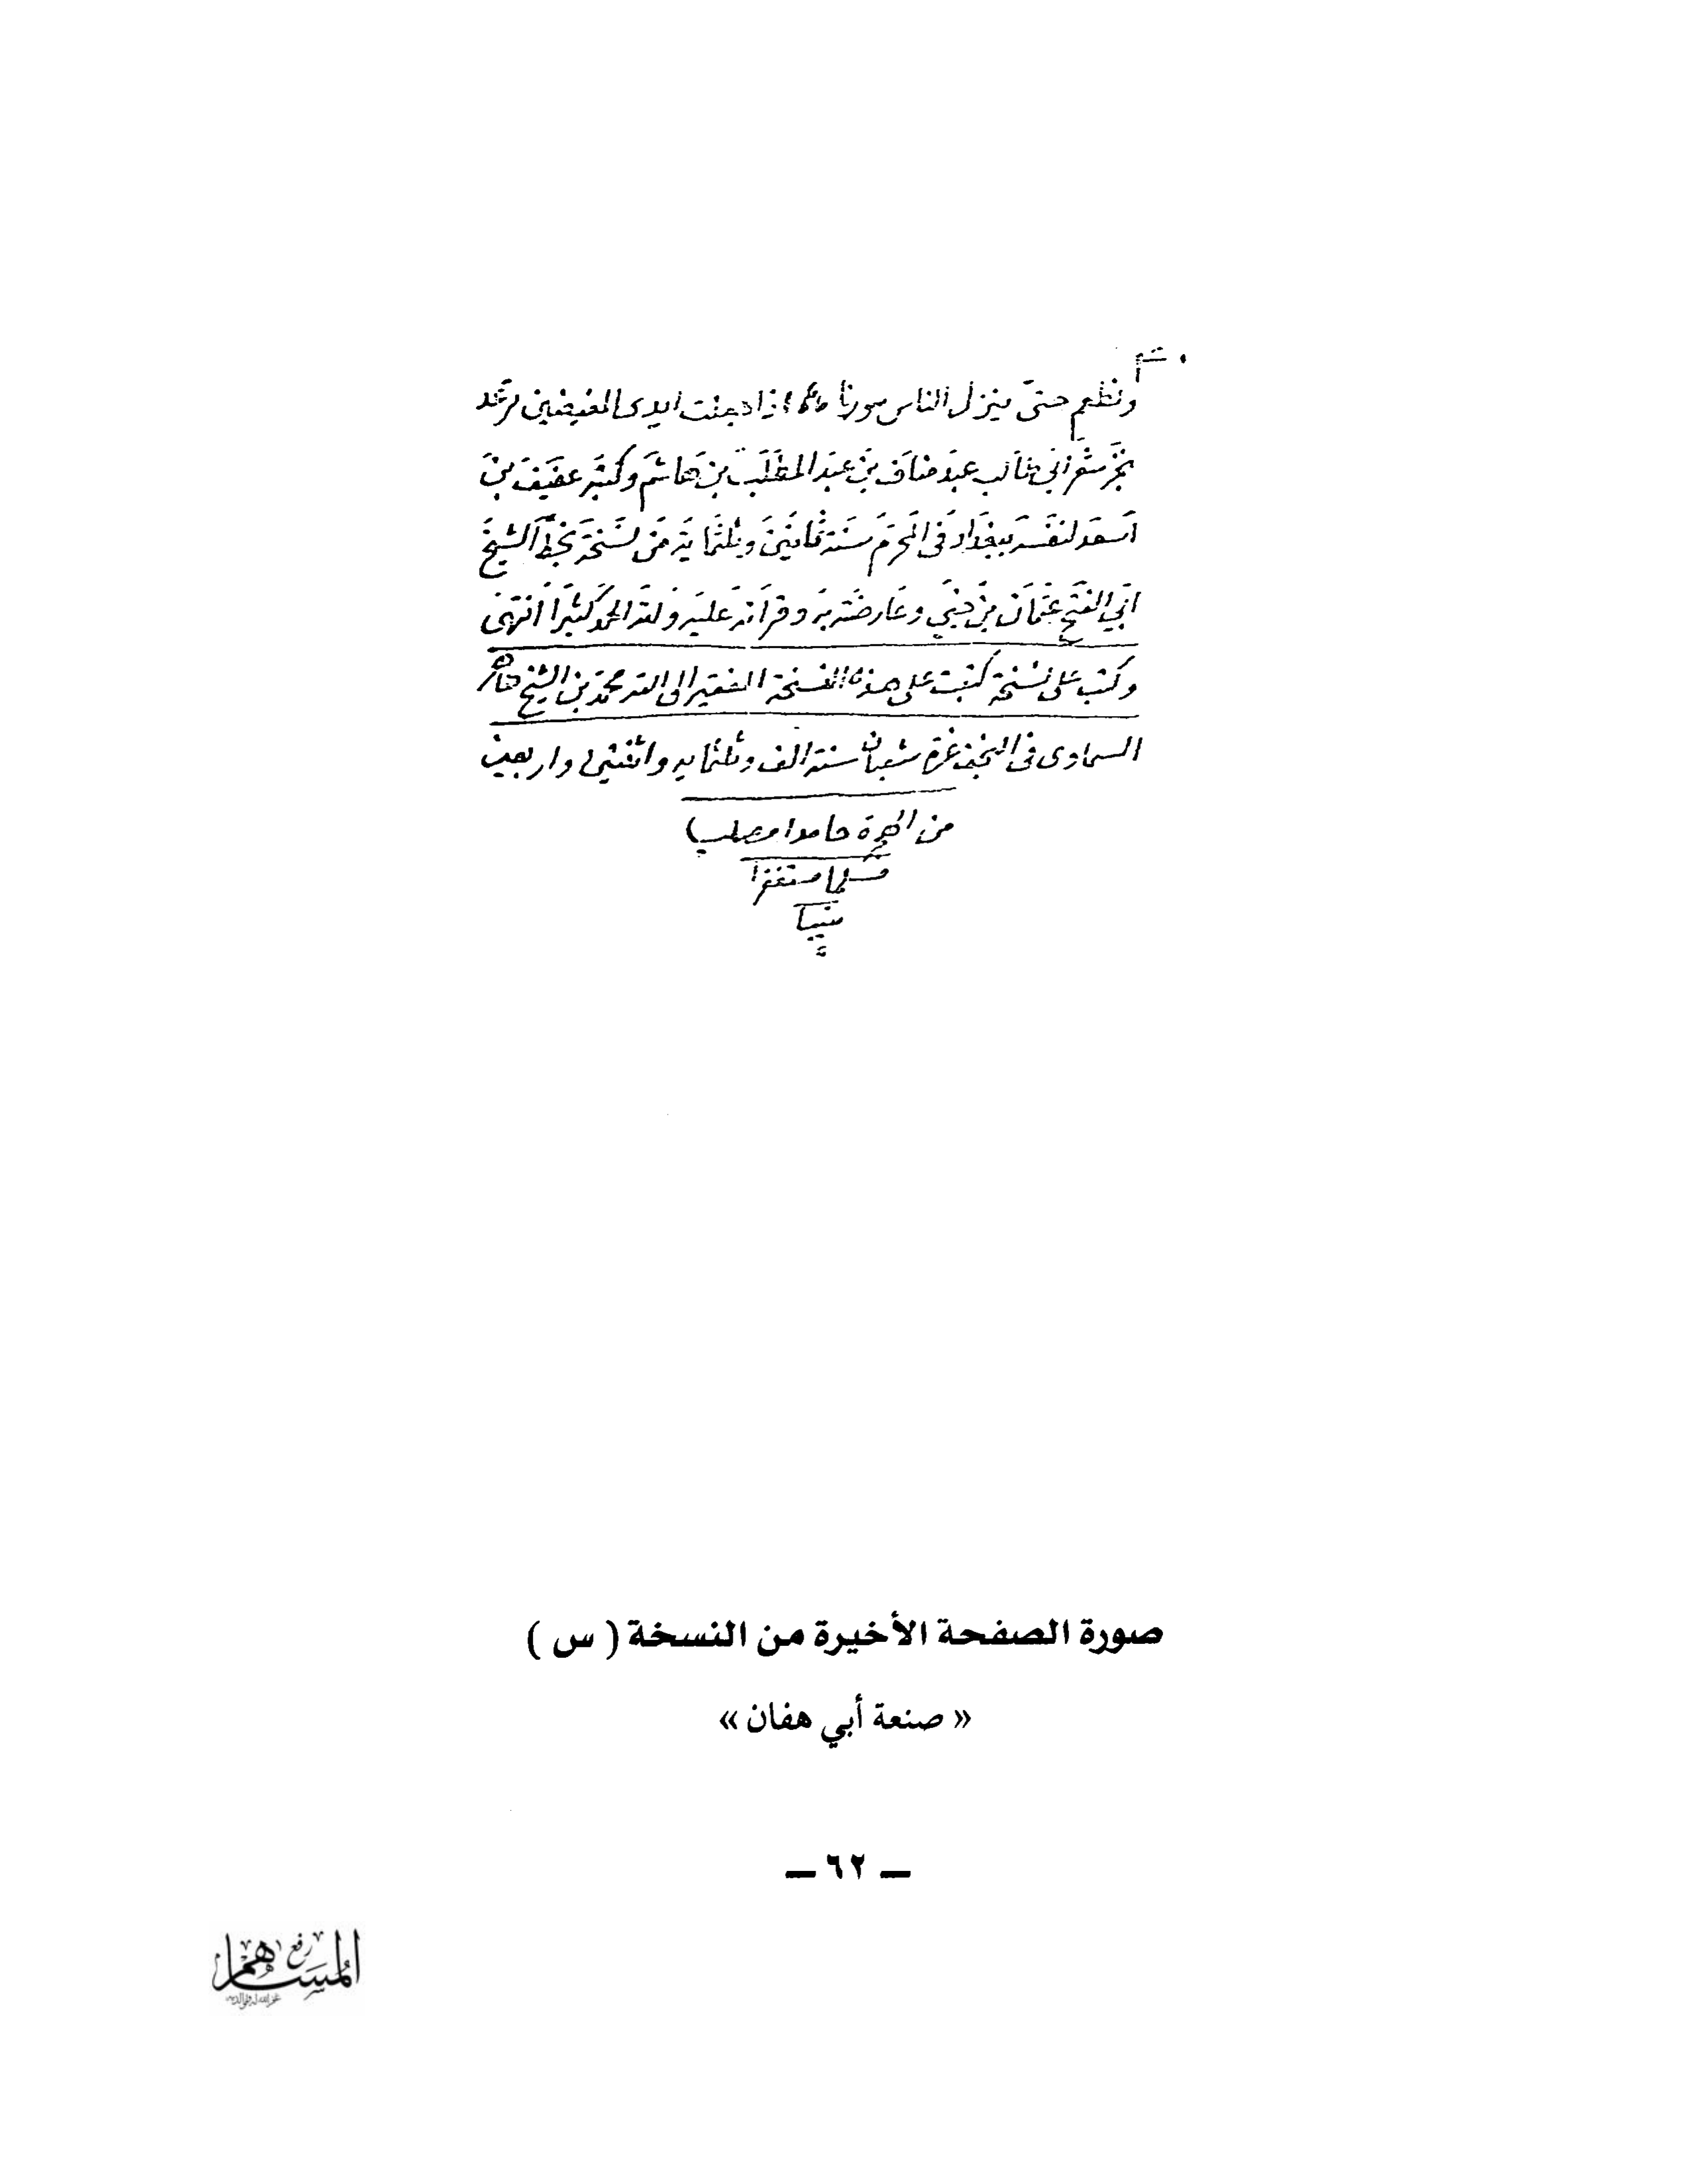 ونطعم حتىّ ينزل الناس سورنا اذا جعلت ايدى المفيضين ترعد
نجز شعر ابي طالب عبد مناف بن عبد المطّلب بن هاشم وكتبه عفيف بن
اسعد لنفسه ببغداد فى المحرم سنة ثمانين وثلثماية من نسخة بخطّ الشيخ
ابي الفتح عثمان بن جني وعارضته به وقرأته عليه ولله الحمد كثيرا انتهى
وكتب على نسخة كتبت على هذه النسخة الفقير الى الله محمد بن الشيخ طاهر
السماوى فى النجف غرة شعبان سنة الف وثلثمايه واثنتين واربعين
من الهجرة حامدا مصليا
مسلما مستغفرا
منيبا
صورة الصفحة الأخيرة من النسخة ( س )
« صنعة أبي هفان »
ــ ٦٢ ــ
رفع
المساهم